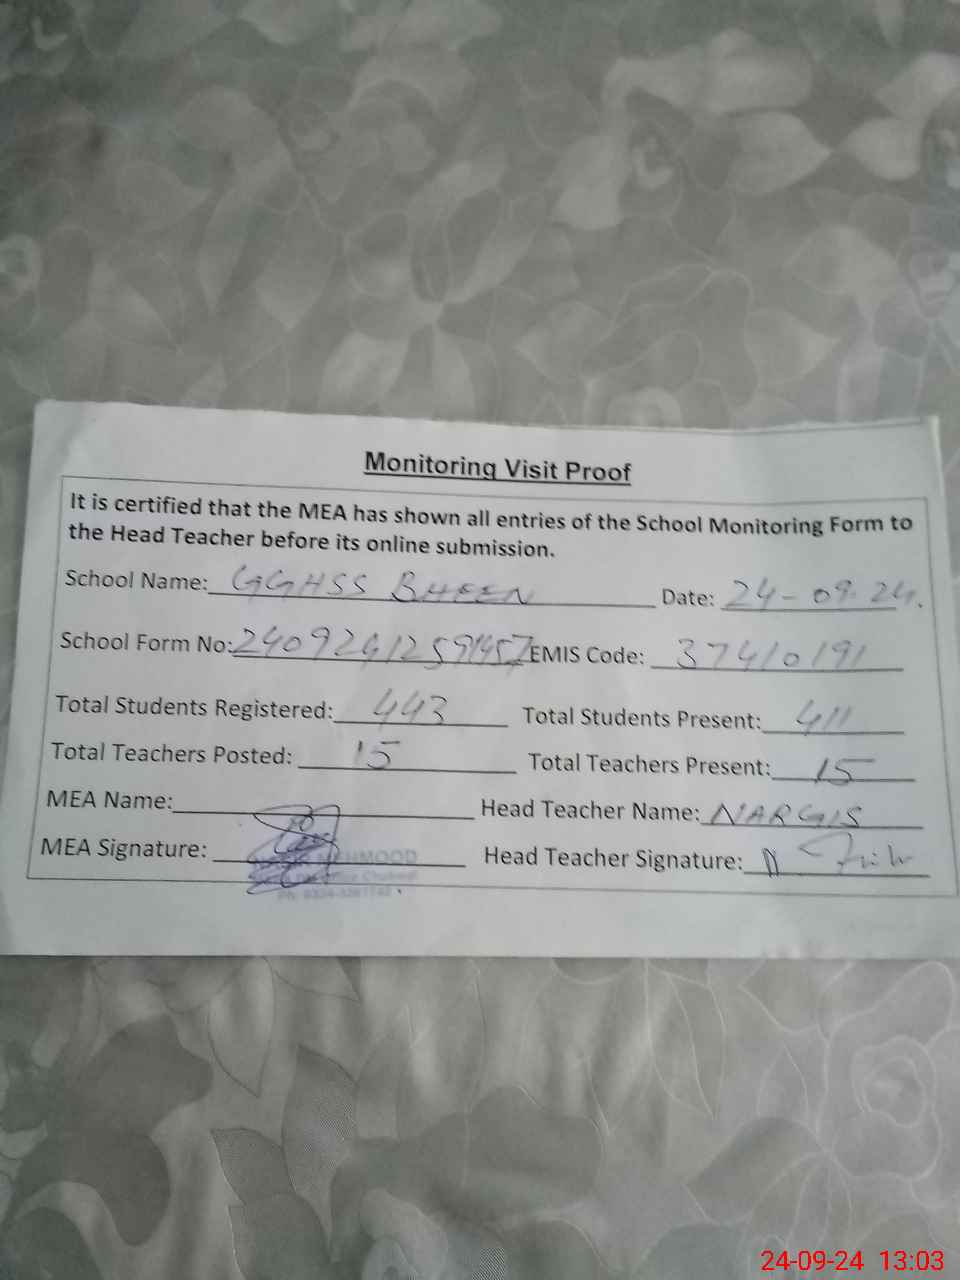 Monitoring Visit Proof
It is certified that the MEA has shown all entries of the School Monitoring Form to
the Head Teacher before its online submission.
School Name: GGHSS BHEEN Date: 24-09-24.
School Form No: EMIS Code: 37410191
Total Students Registered: 443 Total Students Present: 411
Total Teachers Posted: 15 Total Teachers Present: 15
MEA Name: Head Teacher Name: NARGIS
MEA Signature: MEHMOOD Head Teacher Signature:
24-09-24 13:03